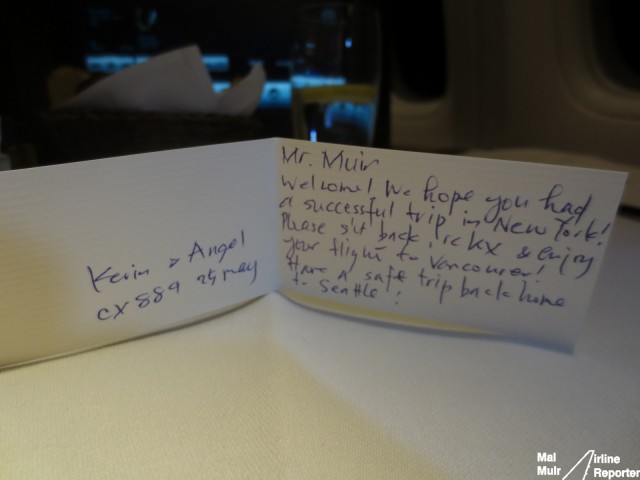 Mr. Muir
Welcome! We hope you had
a successful trip in New York!
Please sit back, relax & enjoy
your flight to Vancouver!
Have a safe trip back home
to Seattle!
Kevin & Angel
CX 889 25 may
Mal Airline
Muir Reporter